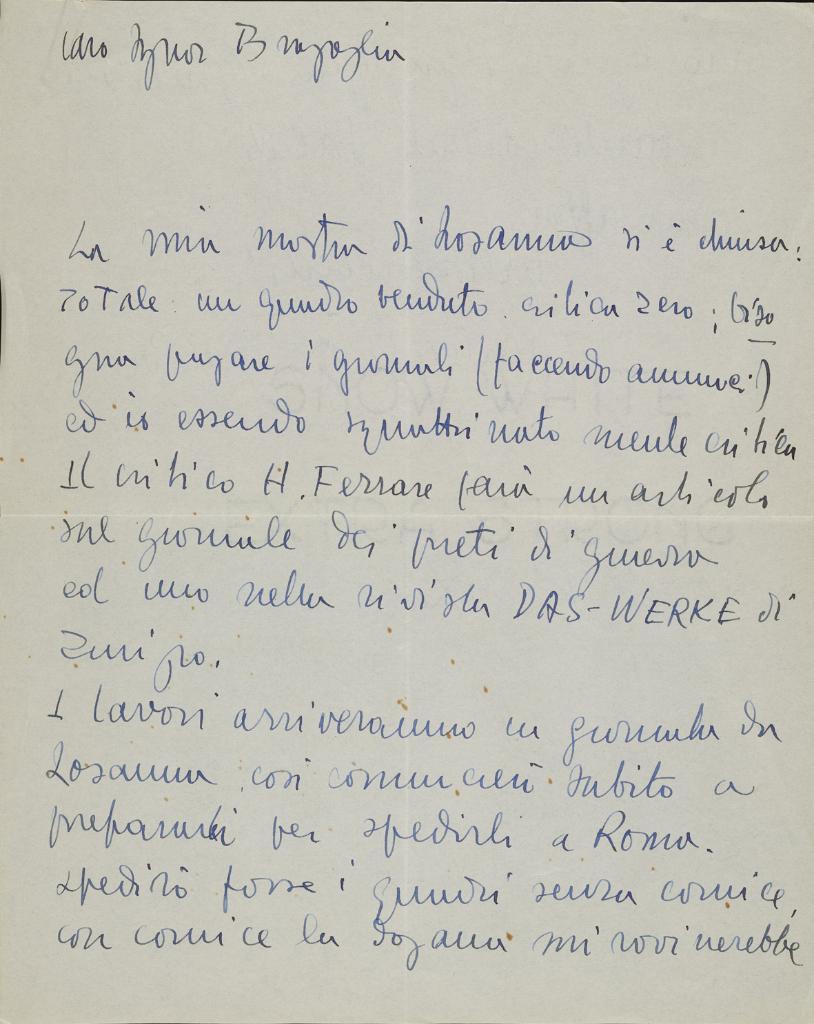 Caro Signor Bragaglia
La mia mostra di Losanna si è chiusa:
Totale un quadro venduto critica zero; biso
gna pagare i giornali (facendo annunci)
ed io essendo squattrinato niente critica
Il critico H. Ferrare farà un articolo
sul giornale dei preti di Ginevra
ed uno nella rivista DAS-WERKE di
Zurigo.
I lavori arriveranno in giornata da
Losanna, così comincierò subito a
prepararli per spedirli a Roma.
Spedirò forse i quadri senza cornice,
con cornice la dogana mi rovinerebbe